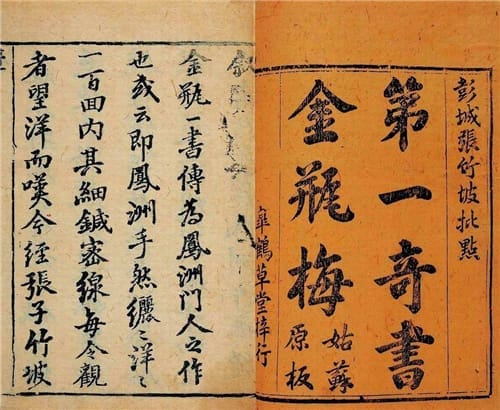 彭城張竹坡批點
第一奇書
金瓶梅
姑蘇
原板
臯鶴草堂梓行
金瓶一書傳為鳳洲門人之作
也或云即鳳洲手然纚〻洋〻
一百囬内其細鍼密線每令觀
者望洋而嘆今經張子竹坡